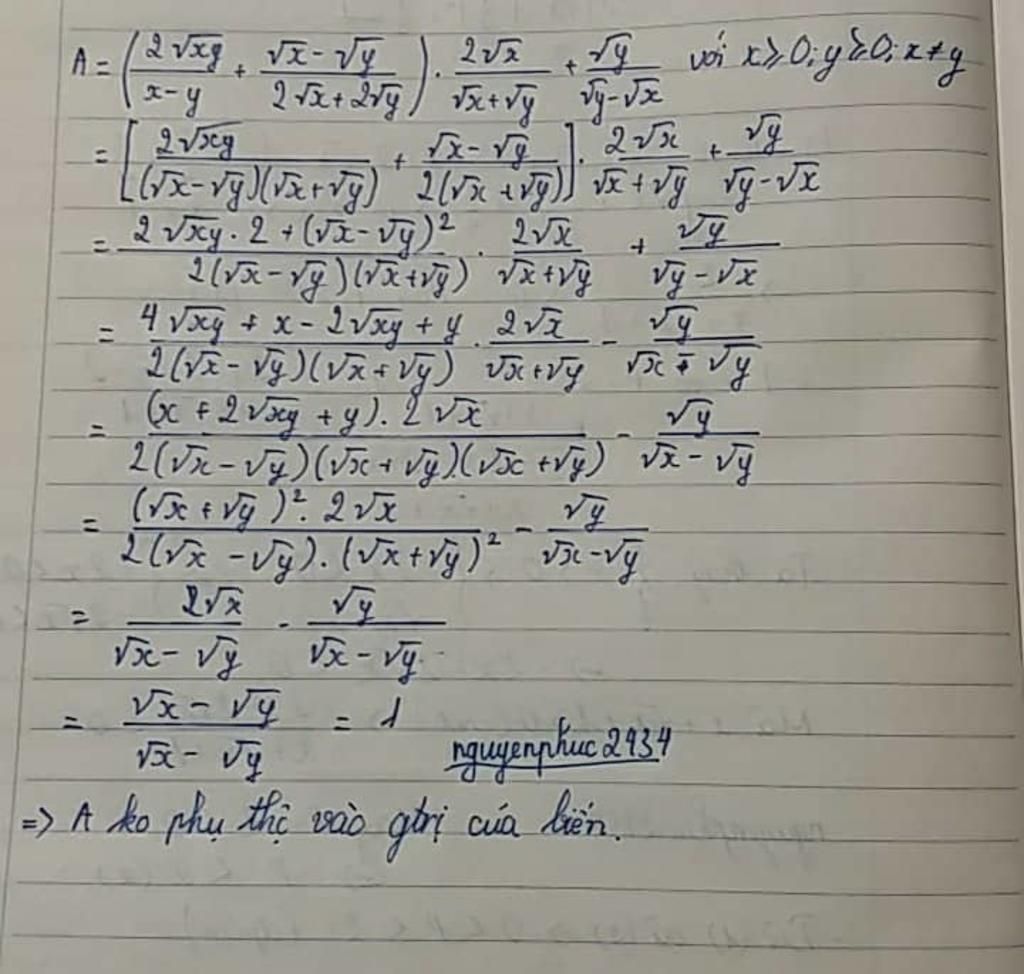 A = (2√xy / x-y + √x - √y / 2√x + 2√y) . 2√x / √x+√y + √y / √y-√x với x≥0; y≥0; x≠y
= [2√xy / (√x-√y)(√x+√y) + √x - √y / 2(√x+√y)] . 2√x / √x+√y + √y / √y-√x
= 2√xy . 2 + (√x-√y)² / 2(√x-√y)(√x+√y) . 2√x / √x+√y + √y / √y-√x
= 4√xy + x - 2√xy + y / 2(√x-√y)(√x+√y) . 2√x / √x+√y - √y / √x - √y
= (x + 2√xy + y) . 2√x / 2(√x-√y)(√x+√y)(√x+√y) - √y / √x - √y
= (√x+√y)² . 2√x / 2(√x-√y).(√x+√y)² - √y / √x-√y
= 2√x / √x-√y - √y / √x-√y
= √x-√y / √x-√y = 1
nguyenphuc2934
=> A ko phụ thộc vào gtrị của biến.